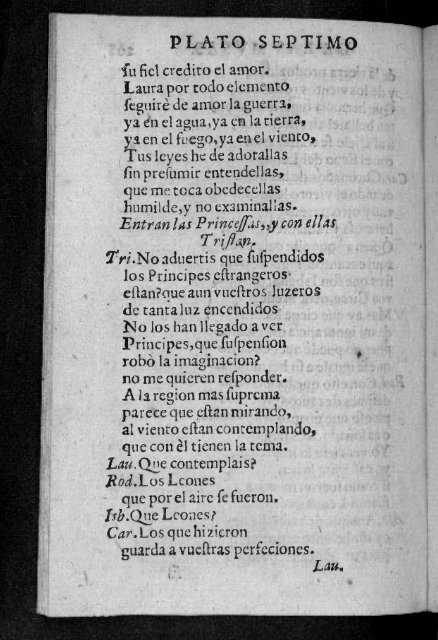 PLATO SEPTIMO
su fiel credito el amor.
Laura por todo elemento
seguirè de amor la guerra,
ya en el agua, ya en la tierra,
ya en el fuego, ya en el viento,
Tus leyes he de adorallas
sin presumir entendellas,
que me toca obedecellas
humilde, y no examinallas.
Entran las Princessas,, y con ellas
Tristan.
Tri. No aduertis que suspendidos
los Principes estrangeros
estan? que aun vuestros luzeros
de tanta luz encendidos
No los han llegado a ver
Principes, que suspension
robò la imaginacion?
no me quieren responder.
A la region mas suprema
parece que estan mirando,
al viento estan contemplando,
que con èl tienen la tema.
Lau. Que contemplais?
Rod. Los Leones
que por el aire se fueron.
Isb. Que Leones?
Car. Los que hizieron
guarda a vuestras perfeciones.
Lau.